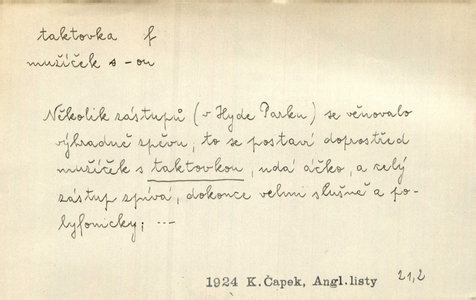 taktovka f
mužíček s -ou
Několik zástupů (v Hyde Parku) se věnovalo
výhradně zpěvu, to se postaví doprostřed
mužíček s taktovkou, udá áčko, a celý
zástup zpívá, dokonce velmi slušně a po-
lyfonicky; ---
1924 K.Čapek, Angl.listy 21,2